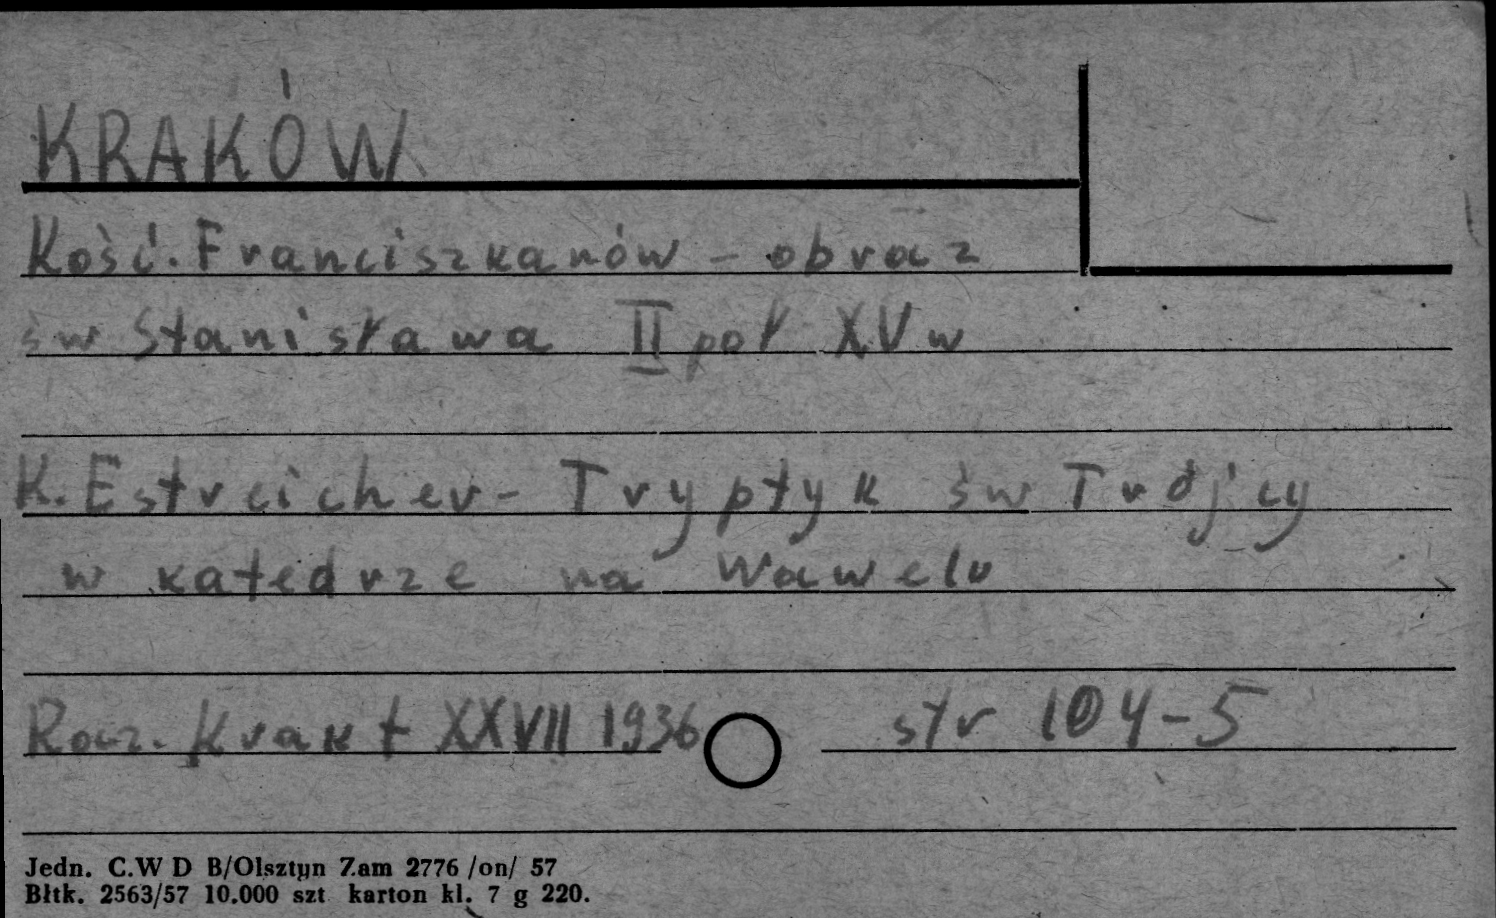 KRAKÓW
Kość. Franciszkanów - obraz
św Stanisława II poł XV w
K. Estreicher - Tryptyk św Trójcy
w katedrze na Wawelu
Rocz. Krak t XXVII 1936 str 104-5
Jedn. C.W D B/Olsztyn Zam 2776 /on/ 57
Błtk. 2563/57 10.000 szt karton kl. 7 g 220.